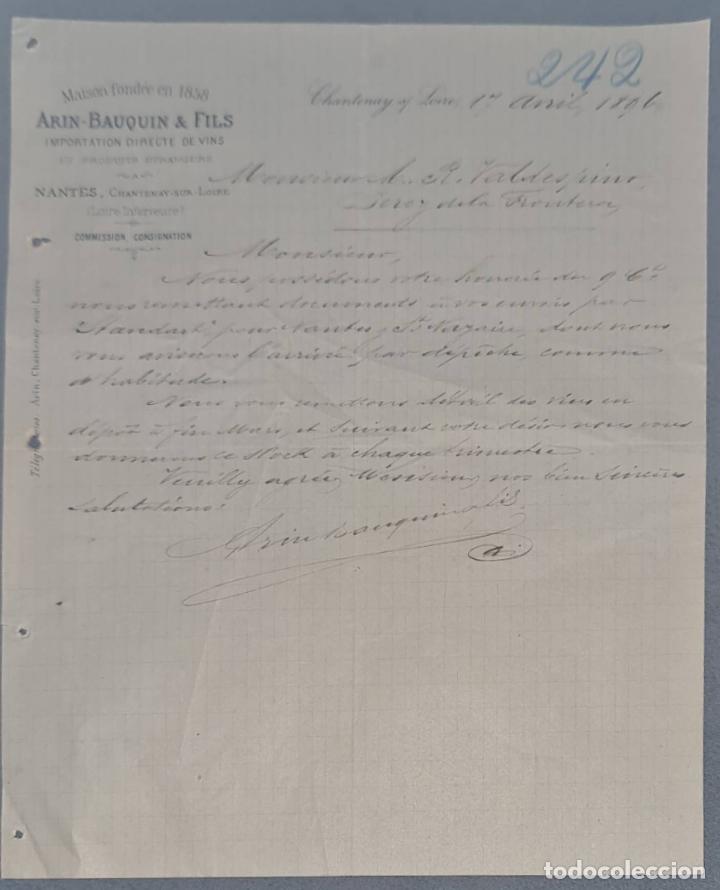 242
Maison fondée en 1858
ARIN-BAUQUIN & FILS
IMPORTATION DIRECTE DE VINS
ET PRODUITS ÉTRANGERS
NANTES, CHANTENAY-SUR-LOIRE
(Loire Inférieure)
COMMISSION, CONSIGNATION
Arin, Chantenay-sur-Loire
Chantenay s/ Loire, 17 avril 1896
Monsieur A. R. Valdespino,
Jerez de la Frontera,
Monsieur,
Nous possédons votre honorée du 9 Ct
nous remettant documents à vos envois par
"Standart" pour Nantes, St Nazaire, dont nous
vous aviserons l'arrivée par dépêche, comme
d'habitude.
Nous vous remettons détail des vins en
dépôt à fin Mars, et suivant votre désir nous vous
donnerons ce stock à chaque trimestre.
Veuillez agréer, Monsieur, nos bien sincères
salutations.
Arin Bauquin & fils
todocoleccion.net